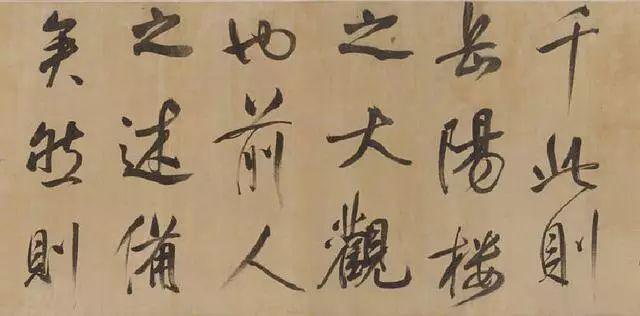 千此則
岳陽楼
之大觀
也前人
之述備
矣然則